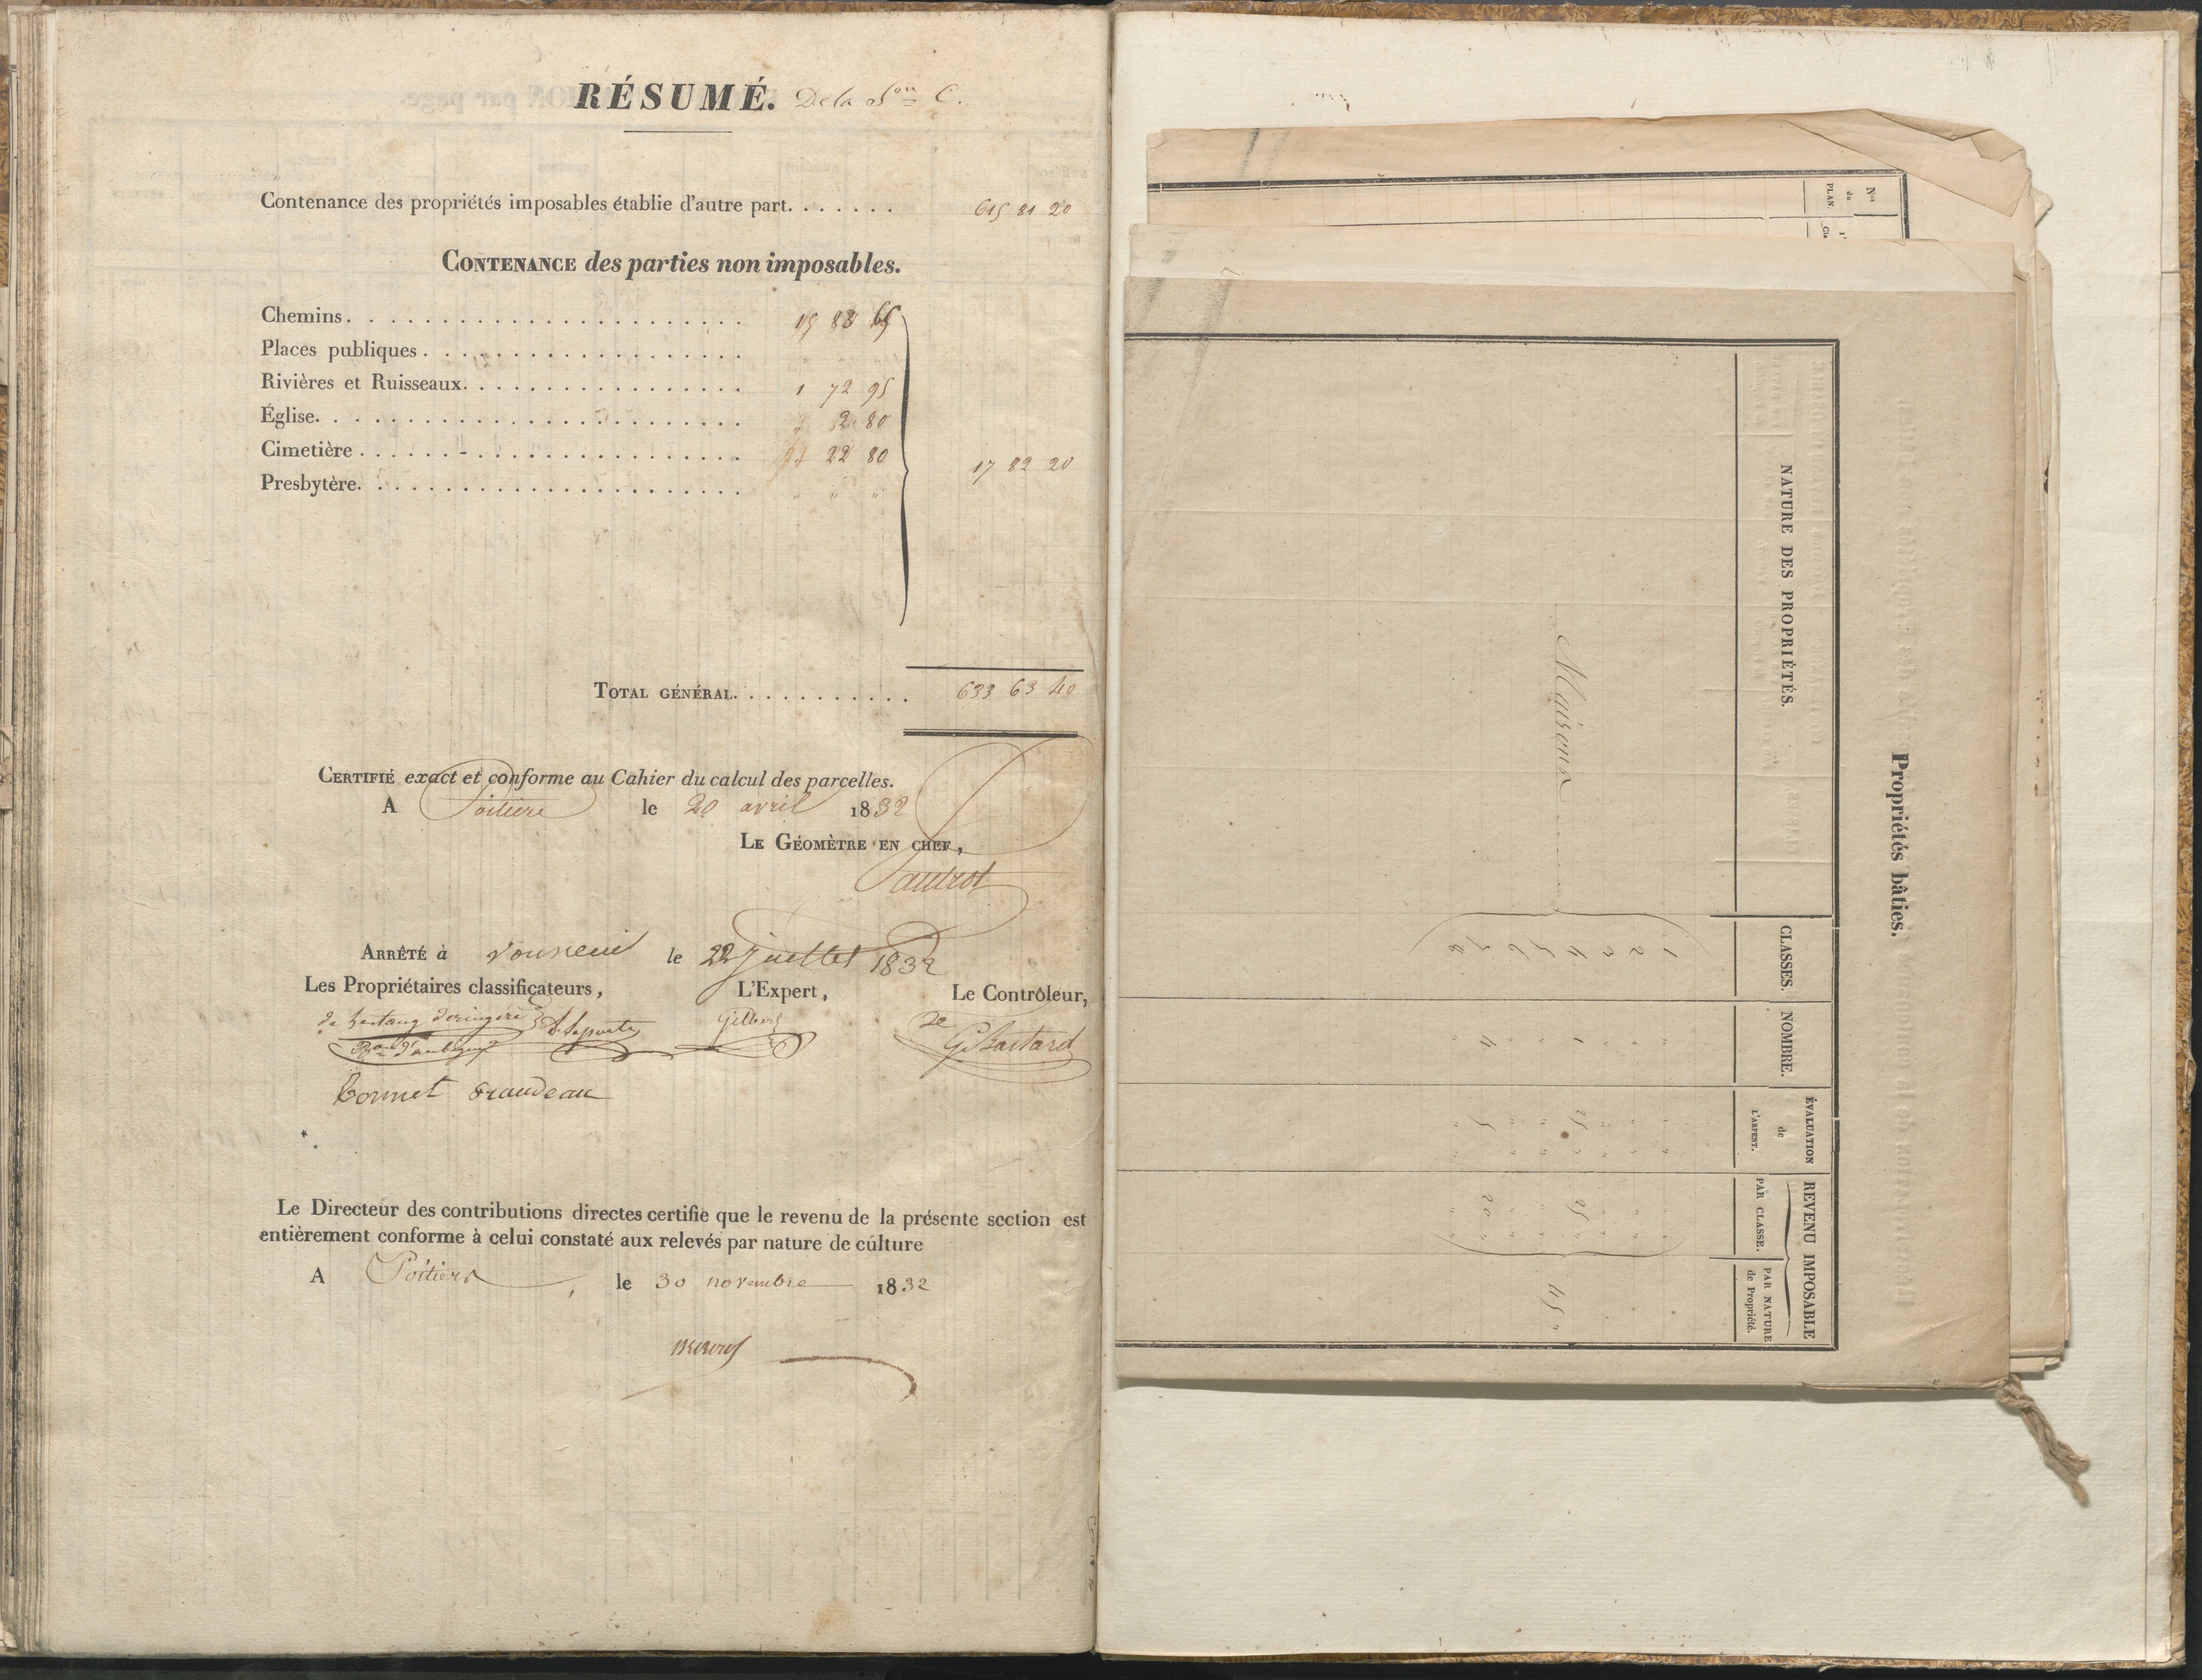 RÉSUMÉ. De la Son C.
Contenance des propriétés imposables établie d'autre part. . . . . . . 615 81 20
CONTENANCE des parties non imposables.
Chemins. . . . . . . . . . . . . . . . . . . . . . . 15 83 65
Places publiques . . . . . . . . . . . . . . . . . . . " " "
Rivières et Ruisseaux. . . . . . . . . . . . . . . . . 1 72 95
Église. . . . . . . . . . . . . . . . . . . . . . . . 2 80
Cimetière . . . . . . . . . . . . . . . . . . . . . . 22 80
17 82 20
Presbytère. . . . . . . . . . . . . . . . . . . . . . " " "
TOTAL GÉNÉRAL. . . . . . . . . . . 633 63 40
CERTIFIÉ exact et conforme au Cahier du calcul des parcelles.
A Poitiers le 20 avril 1832
LE GÉOMÈTRE EN CHEF,
ARRÊTÉ à Vouneuil le 22 juillet 1832
Les Propriétaires classificateurs, L'Expert, Le Contrôleur,
Gilbert
de
G. Bastard
Bonnet
Le Directeur des contributions directes certifie que le revenu de la présente section est
entièrement conforme à celui constaté aux relevés par nature de culture
A Poitiers, le 30 novembre 1832
Nos
du
PLAN.
Propriétés bâties.
NATURE DES PROPRIÉTÉS.
CLASSES.
NOMBRE.
ÉVALUATION
de
L'ARPENT.
REVENU IMPOSABLE
PAR CLASSE.
PAR NATURE
de Propriété.
Maisons
1 " " "
2 " " "
3 " " "
4 1 25 " 25 "
45 "
5 " " "
6 " " "
7 4 5 " 20 "
8 " " "